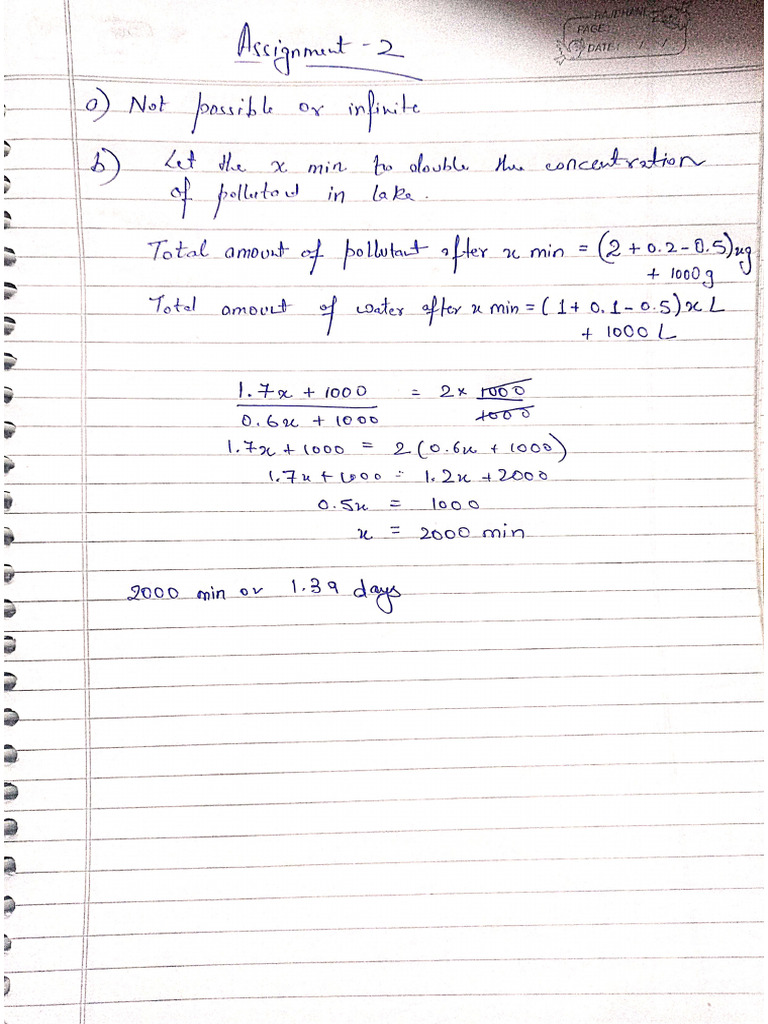 RAJDHANI
PAGE:
DATE: / /
Assignment - 2
a) Not possible or infinite
b) Let the x min to double the concentration
of pollutant in lake.
Total amount of pollutant after x min = (2 + 0.2 - 0.5)xg
+ 1000 g
Total amount of water after x min = (1 + 0.1 - 0.5)x L
+ 1000 L
1.7x + 1000 = 2 × 1000
0.6x + 1000 1000
1.7x + 1000 = 2 (0.6x + 1000)
1.7x + 1000 = 1.2x + 2000
0.5x = 1000
x = 2000 min
2000 min or 1.39 days